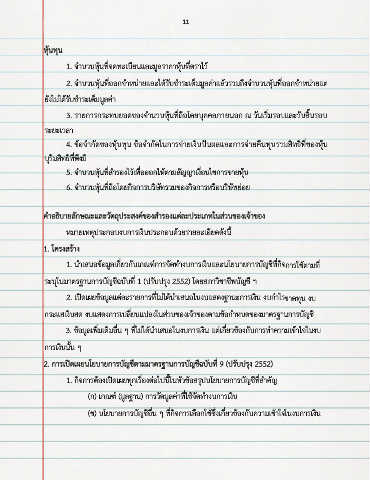 11
หุ้นทุน
1. จำนวนหุ้นที่จดทะเบียนและมูลราคาหุ้นที่ตราไว้
2. จำนวนหุ้นที่ออกจำหน่ายและได้รับชำระเต็มมูลค่าแล้วรวมถึงจำนวนหุ้นที่ออกจำหน่ายแต่
ยังไม่ได้รับชำระเต็มมูลค่า
3. รายการกระทบยอดของจำนวนหุ้นที่ถือโดยบุคคลภายนอก ณ วันเริ่มรอบและวันสิ้นรอบ
ระยะเวลา
4. ข้อจำกัดของหุ้นทุน ข้อจำกัดในการจ่ายเงินปันผลและการจ่ายคืนทุนรวมสิทธิที่ของหุ้น
บุริมสิทธิที่พึงมี
5. จำนวนหุ้นที่สำรองไว้เพื่อออกให้ตามสัญญาเงื่อนไขการขายหุ้น
6. จำนวนหุ้นที่ถือโดยกิจการบริษัทร่วมของกิจการหรือบริษัทย่อย
คำอธิบายลักษณะและวัตถุประสงค์ของสำรองแต่ละประเภทในส่วนของเจ้าของ
หมายเหตุประกอบงบการเงินประกอบด้วยรายละเอียดดังนี้
1. โครงสร้าง
1. นำเสนอข้อมูลเกี่ยวกับเกณฑ์การจัดทำงบการเงินและนโยบายการบัญชีที่กิจการใช้ตามที่
ระบุในมาตรฐานการบัญชีฉบับที่ 1 (ปรับปรุง 2552) โดยสภาวิชาชีพบัญชี ฯ
2. เปิดเผยข้อมูลแต่ละรายการที่ไม่ได้นำเสนอในงบแสดงฐานะการเงิน งบกำไรขาดทุน งบ
กระแสเงินสด งบแสดงการเปลี่ยนแปลงในส่วนของเจ้าของตามข้อกำหนดของมาตรฐานการบัญชี
3. ข้อมูลเพิ่มเติมอื่น ๆ ที่ไม่ได้นำเสนอในงบการเงิน แต่เกี่ยวข้องกับการทำความเข้าใจในงบ
การเงินนั้น ๆ
2. การเปิดเผยนโยบายการบัญชีตามมาตรฐานการบัญชีฉบับที่ 9 (ปรับปรุง 2552)
1. กิจการต้องเปิดเผยทุกเรื่องต่อไปนี้ในหัวข้อสรุปนโยบายการบัญชีที่สำคัญ
(ก) เกณฑ์ (มูลฐาน) การวัดมูลค่าที่ใช้จัดทำงบการเงิน
(ข) นโยบายการบัญชีอื่น ๆ ที่กิจการเลือกใช้ซึ่งเกี่ยวข้องกับความเข้าใจในงบการเงิน